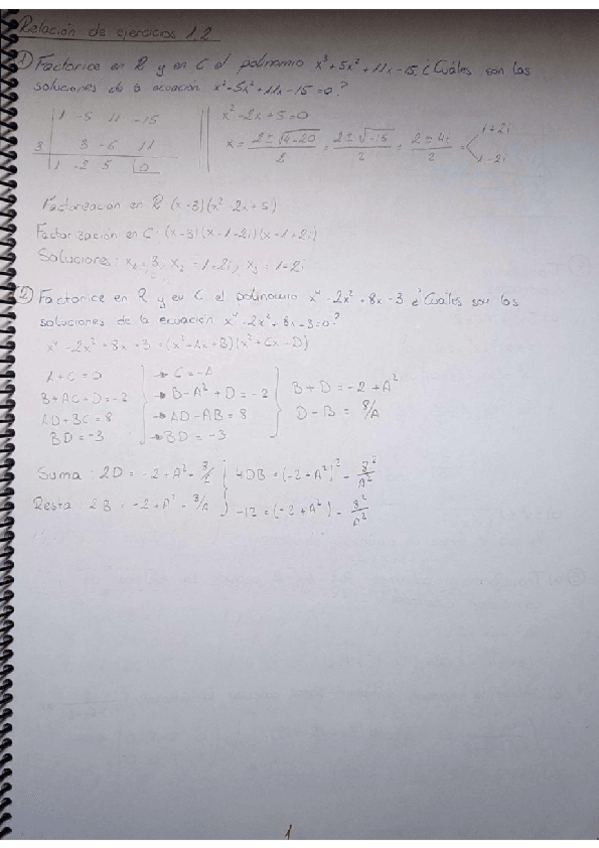 Relación de ejercicios 1.2
1) Factorice en R y en C el polinomio x³+5x²+11x-15. ¿Cuáles son las
soluciones de la ecuación x³-5x²+11x-15=0?
1 -5 11 -15
3 3 -6 11
1 -2 5 0
x²-2x+5=0
x = 2±√4-20 / 2 = 2±√-16 / 2 = 2±4i / 2 1+2i
1-2i
Factorización en R: (x-3)(x²-2x+5)
Factorización en C: (x-3)(x-1-2i)(x-1+2i)
Soluciones: x₁=3, x₂=1+2i, x₃=1-2i
2) Factorice en R y en C el polinomio x⁴-2x²+8x-3 ¿Cuáles son las
soluciones de la ecuación x⁴-2x²+8x-3=0?
x⁴-2x²+8x-3=(x²+Ax+B)(x²+Cx+D)
A+C=0 → C=-A
B+AC+D=-2 → B-A²+D=-2 B+D=-2+A²
AD+BC=8 → AD-AB=8 D-B=8/A
BD=-3 → BD=-3
Suma: 2D=-2+A²- 4DB=(-2+A²)²-8²/A²
Resta: 2B=-2+A²-8/A -12=(-2+A²)-8²/A²
1